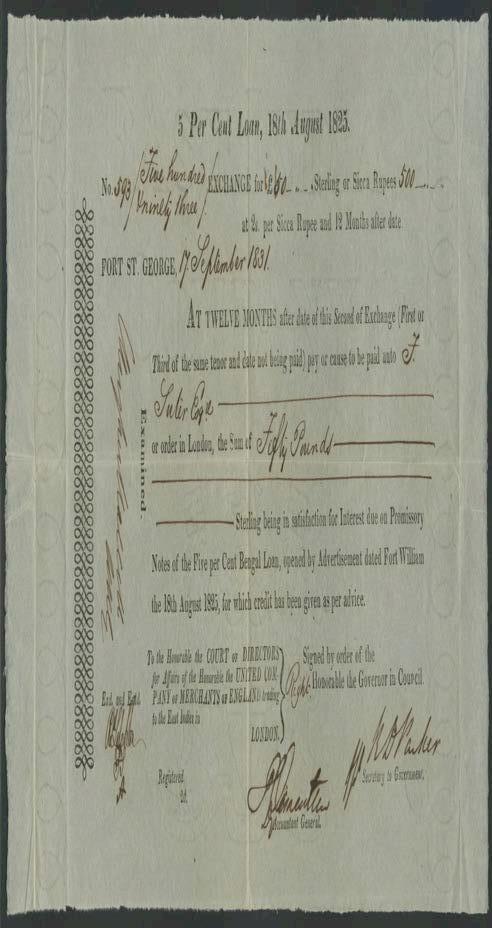 5 Per Cent Loan, 18th August 1825.
No. 593 / Five hundred & ninety three / EXCHANGE for £50 Sterling or Sicca Rupees 500
at 2s. per Sicca Rupee and 12 Months after date
FORT ST. GEORGE, 17 September 1831.
AT TWELVE MONTHS after date of this Second of Exchange (First or
Third of the same tenor and date not being paid) pay or cause to be paid unto F
Suter Esqe
or order in London, the Sum of Fifty Pounds
Sterling being in satisfaction for Interest due on Promissory
Notes of the Five per Cent Bengal Loan, opened by Advertisement dated Fort William
the 18th August 1825, for which credit has been given as per advice.
Examined.
To the Honorable the COURT OF DIRECTORS
for Affairs of the Honorable the UNITED COM-
PANY OF MERCHANTS OF ENGLAND trading
to the East Indies in
LONDON.
Signed by order of the
Right Honorable the Governor in Council.
Exd. and Entd.
Registered
Secretary to Government.
Accountant General.